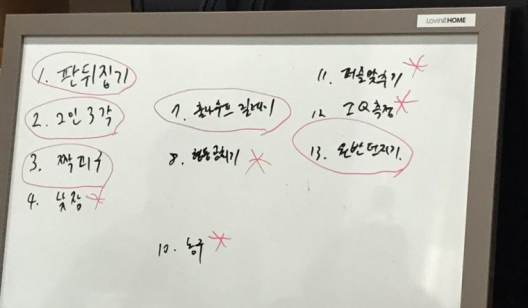 LovingHOME
1. 판뒤집기
2. 2인 3각
3. 짝피구
4. 낮잠
7. 훌라후프 릴레이
8. 협동공튀기기
10. 농구
11. 퍼즐맞추기
12 IQ측정
13. 원반던지기